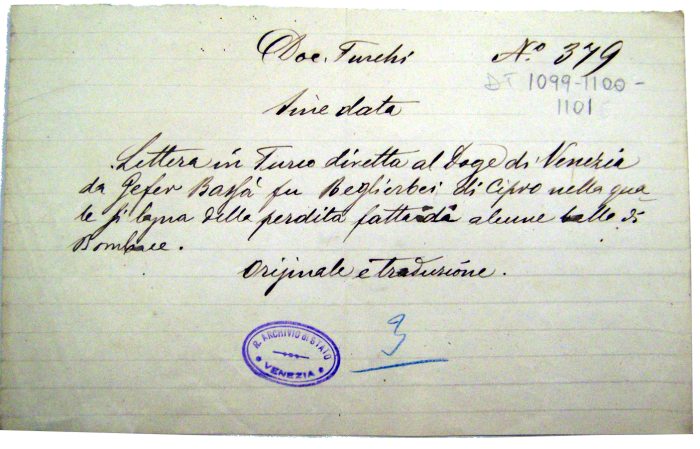 Doc. Turchi N.º 379
DT 1099-1100-
1101
Sine data
Lettera in Turco diretta al Doge di Venezia
da Gefer Bassà fu Beglierbei di Cipro nella qua-
le si lagna della perdita fatta di alcune balle di
Bombace.
Originale e traduzione.
R. ARCHIVIO di STATO
VENEZIA
3